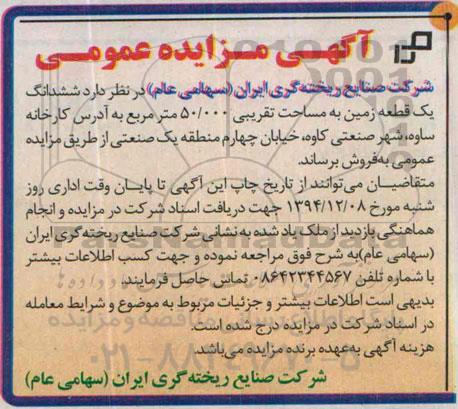 آگهـی مـزایده عمومـی
شرکت صنایع ریخته‌گری ایران (سهامی عام) در نظر دارد ششدانگ
یک قطعه زمین به مساحت تقریبی ۵۰/۰۰۰ متر مربع به آدرس کارخانه
ساوه، شهر صنعتی کاوه، خیابان چهارم منطقه یک صنعتی از طریق مزایده
عمومی به‌فروش برساند.
متقاضیـان می‌توانند از تاریخ چاپ این آگهی تا پایـان وقت اداری روز
شنبه مورخ ۱۳۹۴/۱۲/۰۸ جهت دریافت اسناد شرکت در مزایده و انجام
هماهنگی بازدید از ملک یاد شده به نشانی شرکت صنایع ریخته‌گری ایران
(سهامی عام) به شرح فوق مراجعه نموده و جهت کسب اطلاعات بیشتر
با شماره تلفن ۰۸۶۴۲۳۴۴۵۶۷ تماس حاصل فرمایند.
بدیهی است اطلاعات بیشتر و جزئیات مربوط به موضوع و شرایط معامله
در اسناد شرکت در مزایده درج شده است.
هزینه آگهی به‌عهده برنده مزایده می‌باشد.
شرکت صنایع ریخته‌گری ایران (سهامی عام)